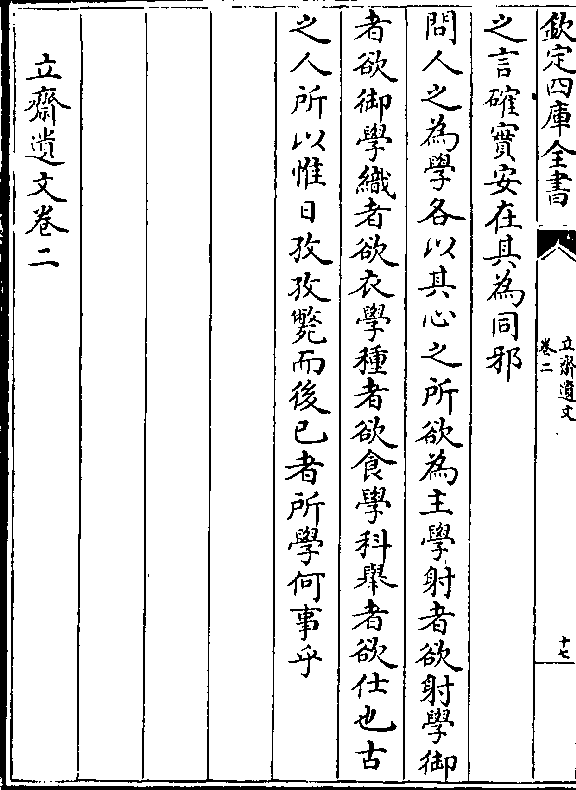 欽定四庫全書
立齋遺文
卷二
十七
之言確實安在其為同邪
問人之為學各以其心之所欲為主學射者欲射學御
者欲御學織者欲衣學種者欲食學科舉者欲仕也古
之人所以惟日孜孜斃而後已者所學何事乎
立齋遺文卷二